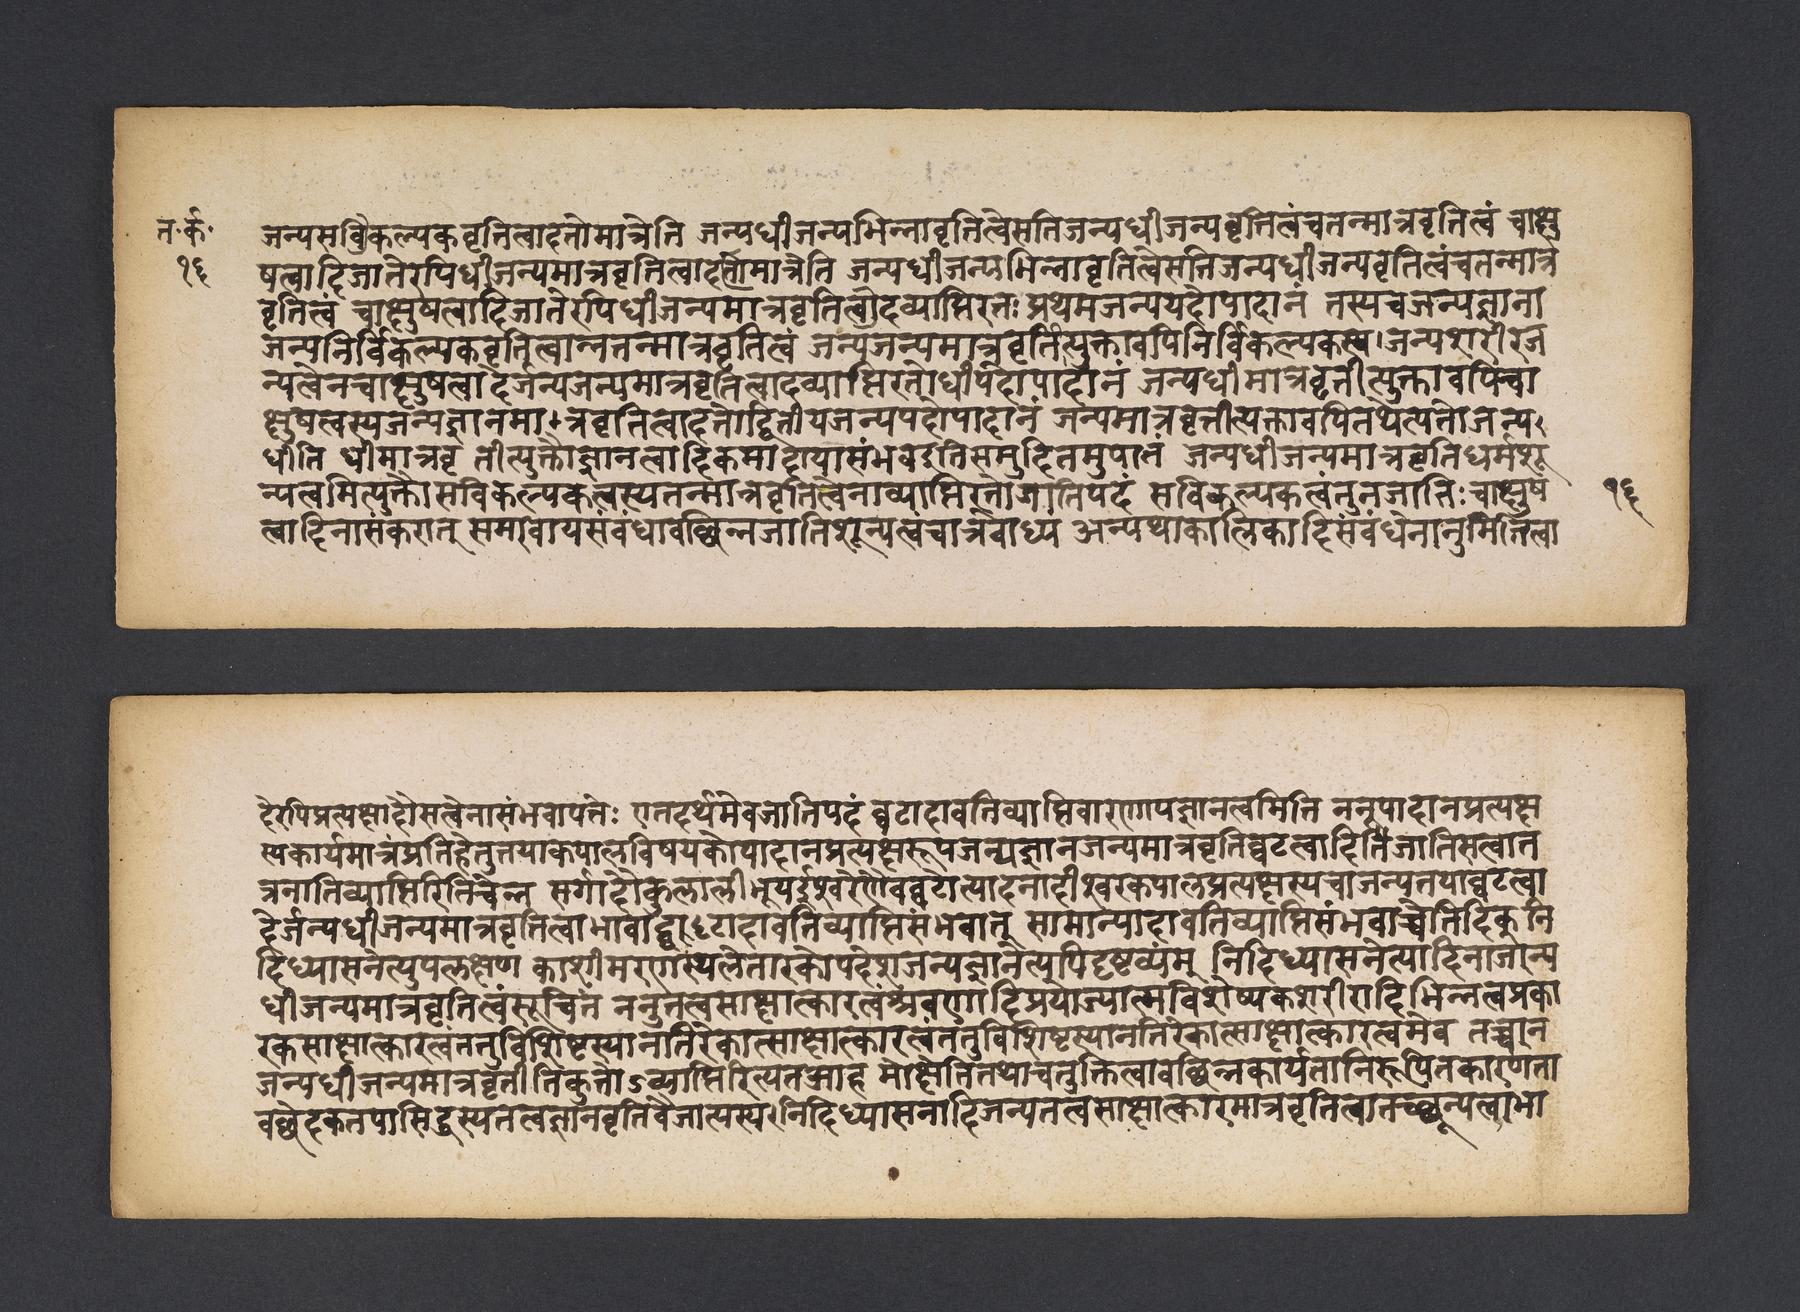 त॰र्क॰
१६
जन्यसविकल्पकवृत्तित्वादतोमात्रेति जन्यधीजन्यभिन्नावृत्तित्वेसतिजन्यधीजन्यवृत्तित्वंचतन्मात्रवृत्तित्वं चाक्षु
षत्वादिजातेरपिधीजन्यमात्रवृत्तित्वादतोमात्रेति जन्यधीजन्यभिन्नावृत्तित्वेसतिजन्यधीजन्यवृत्तित्वंचतन्मात्र
वृत्तित्वं चाक्षुषत्वादिजातेरपिधीजन्यमात्रवृत्तित्वादव्याप्तिरतः प्रथमजन्यपदोपादानं तस्यचजन्यज्ञाना
जन्यनिर्विकल्पकवृत्तित्वान्नतन्मात्रवृत्तित्वं जन्यजन्यमात्रवृत्तित्युक्तावपिनिर्विकल्पकस्य।जन्यशरीरज
न्यत्वेनचाक्षुषत्वादेर्जन्यजन्यमात्रवृत्तित्वादव्याप्तिरतोधीपदोपादानं जन्यधीमात्रवृत्तीत्युक्तावपिचा
क्षुषत्वस्यजन्यज्ञानमा।त्रवृत्तित्वादतोद्वितीयजन्यपदोपादानं जन्यमात्रवृत्तीत्यक्तावपितथेत्यतोजन्य
धीति धीमात्रवृ त्तीत्युक्तौज्ञानत्वादिकमादायासंभवइतिसमुदितमुपात्तं जन्यधीजन्यमात्रवृत्तिधर्मशू
न्यत्वमित्युक्तौसविकल्पकत्वस्यतन्मात्रवृत्तित्वेनाव्याप्तिरतोजातिपदं सविकल्पकत्वंतुनजातिः चाक्षुष
त्वादिनासंकरात् समवायसंबंधावच्छिन्नजातिशून्यत्वंचात्रबोध्य अन्यथाकालिकादिसंबंधेनानुमितित्वा
१६
देरपिप्रत्यक्षादौसत्वेनासंभवापत्तेः एतदर्थमेवजातिपदं घटादावतिव्याप्तिवारणापज्ञानत्वमिति ननूपादानप्रत्यक्ष
स्यकार्यमात्रंप्रतिहेतुत्तयाकपालविषयकोपादानप्रत्यक्षरूपजन्यज्ञानजन्यमात्रवृत्तिघटत्वादिजातिसत्वात
त्रनातिव्याप्तिरितिचेन्न सर्गादौकुलाली भूयईश्वरेणैवघटोत्पादनादीश्वरकपालप्रत्यक्षस्यचाजन्यतयाघटत्वा
देर्जन्यधीजन्यमात्रवृत्तित्वाभावाद्घटादावतिव्याप्तिसंभवात् सामान्यादावतिव्याप्तिसंभवाच्चेतिदिक् नि
दिध्यासनेत्युपलक्षण काशीमरणस्थलेतारकोपदेशजन्यज्ञानेत्यपिद्दष्टव्यंम् निदिध्यासनेत्यादिनाजन्य
धीजन्यमात्रवृत्तित्वंसूचितं ननुतत्वसाक्षात्कारत्वंश्रवणादिप्रयोज्यात्मविशेष्यकशरीरादिभिन्नत्वप्रका
रकसाक्षात्कारत्वंतत्तुविशिष्टस्यानतिरेकात्साक्षात्कारत्वंतत्तुविशिष्टस्यानतिरेकात्साक्षात्कारत्वमेव तच्चान
जन्यधीजन्यमात्रवृत्तीतिकुतोऽव्याप्तिरित्यतआह मोक्षेतितथाचतुक्तित्वावच्छिन्नकार्यतानिरूपितकारणता
वच्छेदकतयासिद्धस्यतत्वज्ञानवृत्तिवैजात्यस्य निदिध्यासनादिजन्यतत्वसाक्षात्कारमात्रवृत्तित्वातच्छून्यत्वाभा